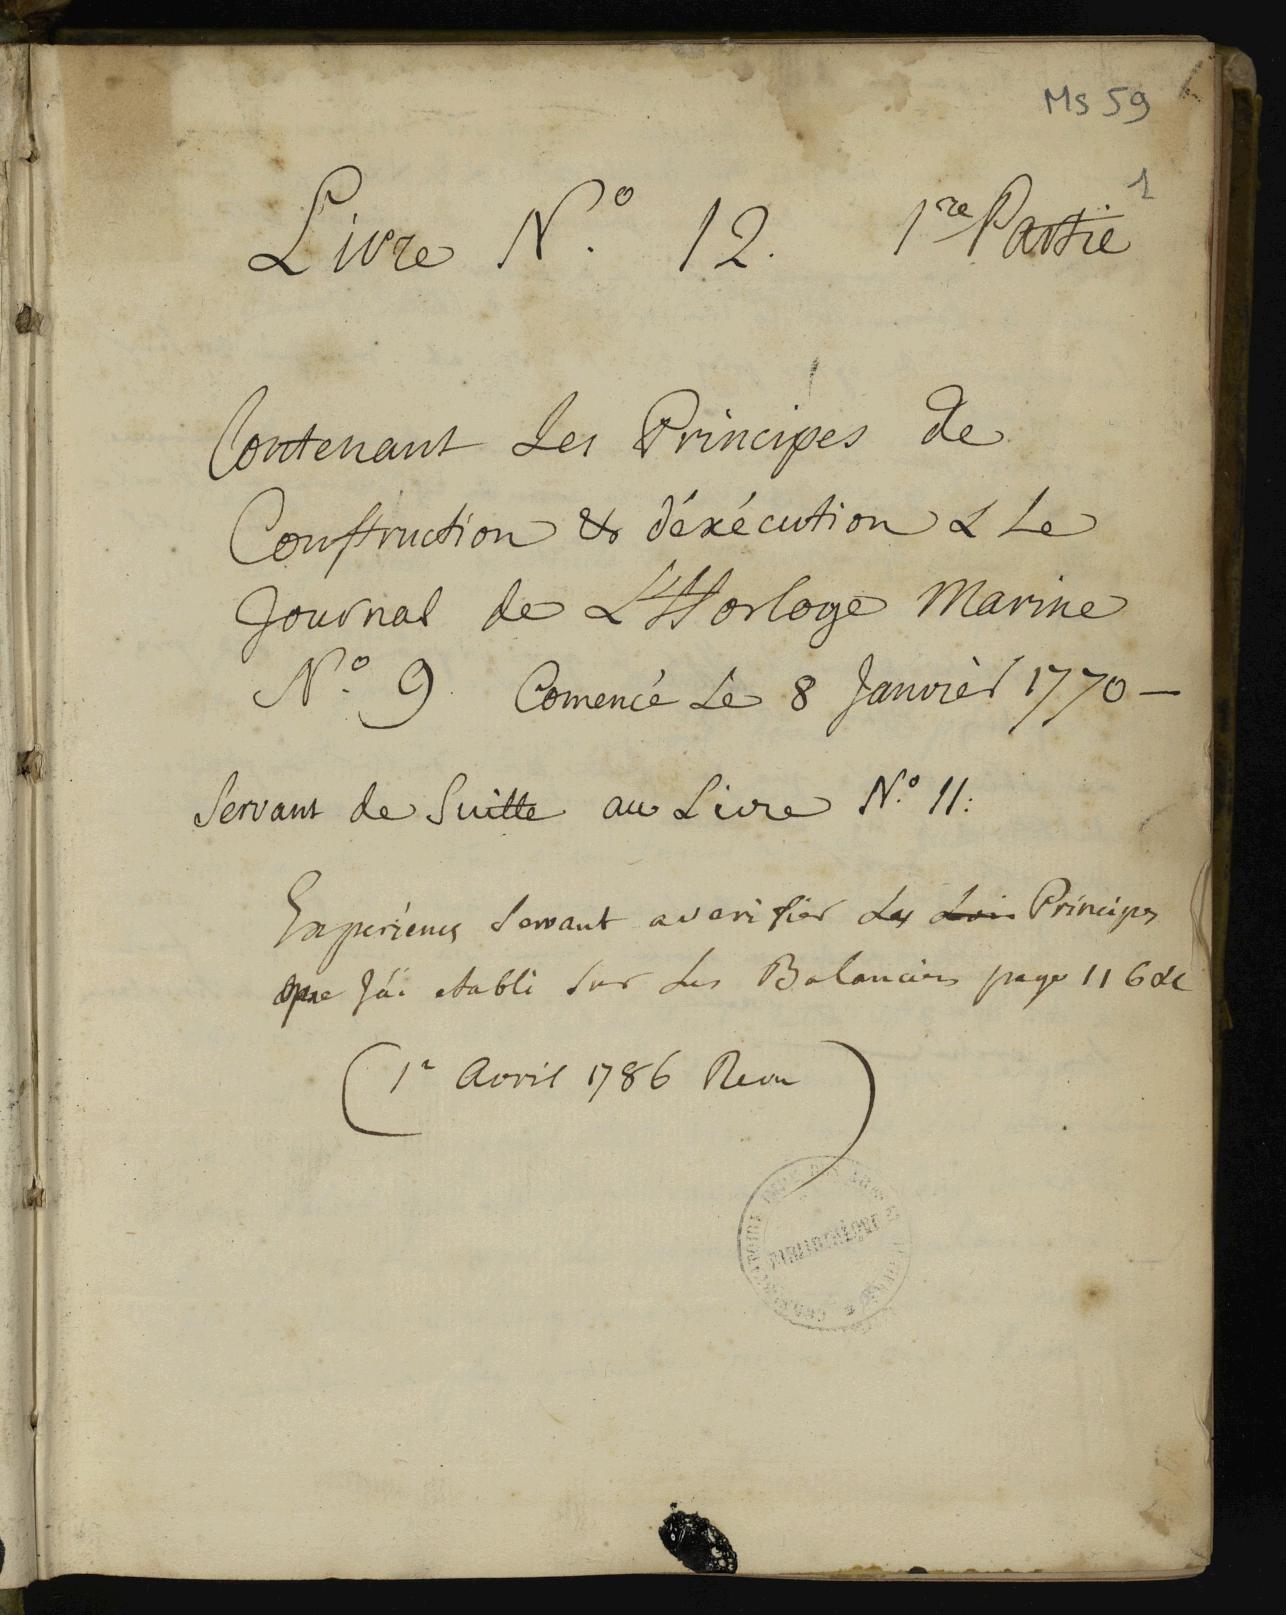 Ms 59
1
Livre N.º 12. 1re Partie
Contenant Les Principes de
Construction & d'éxécution & Le
Journal de L'Horloge Marine
N.º 9 Comencé Le 8 Janvièr 1770 —
Servant de Suitte au Livre N.º 11:
Experiences Servant a verifier Les Loix Principes
que J'ai etabli sur Les Balanciers page 116 &c
(1r Avril 1786 Revu)
BIBLIOTHÈQUE